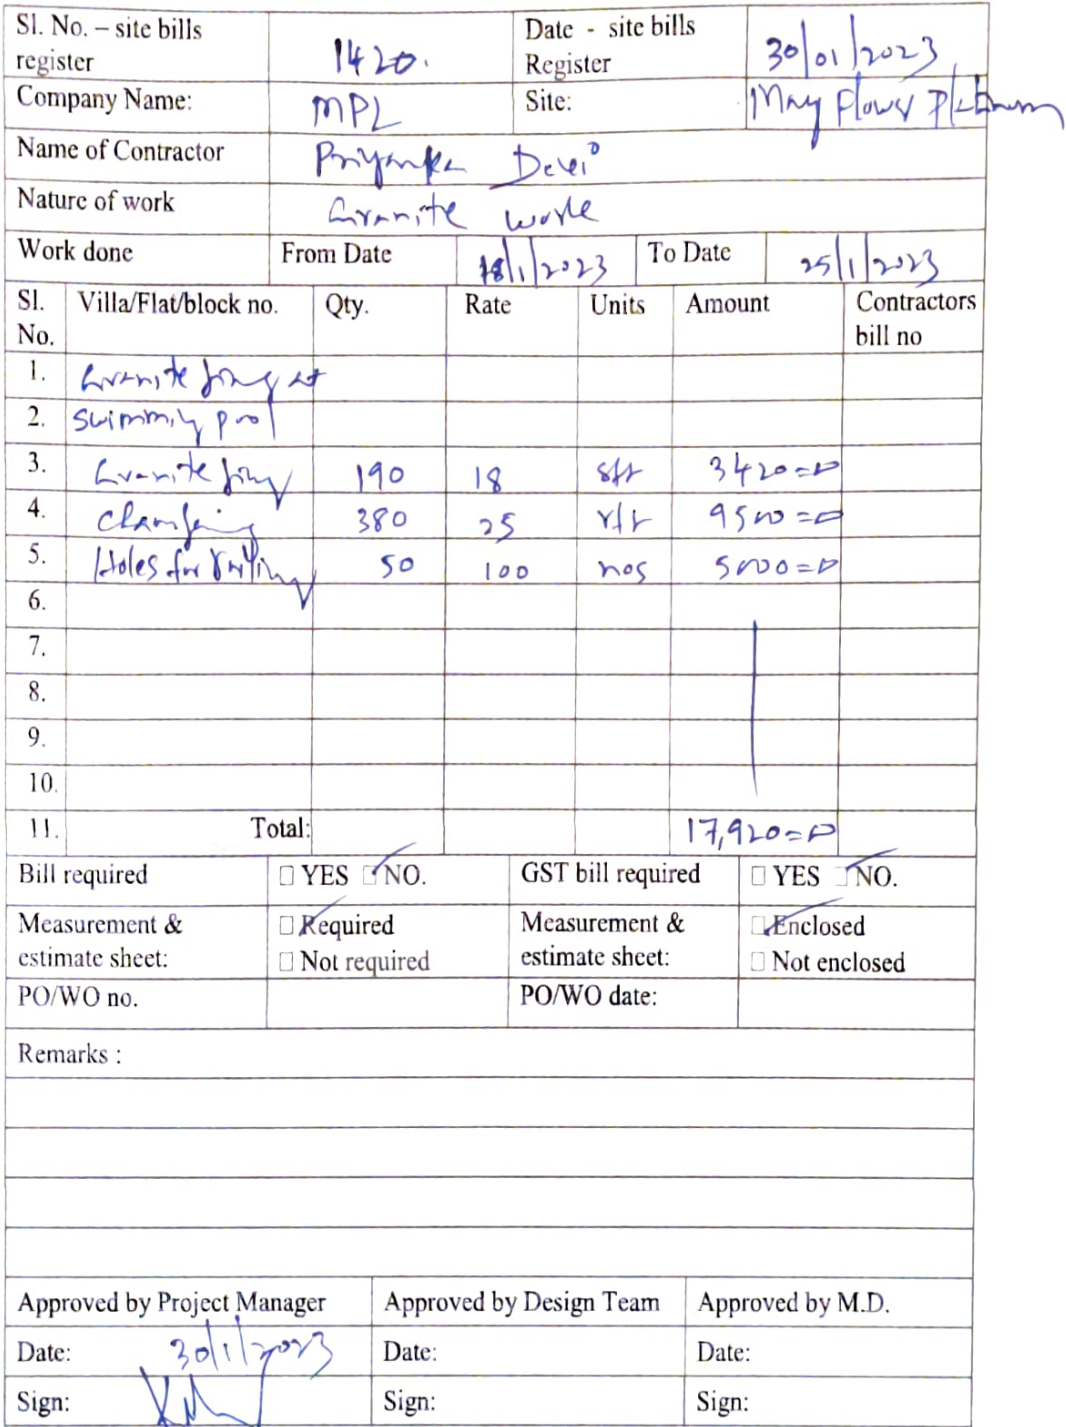 Sl. No. – site bills register 1420. Date - site bills Register 30/01/2023
Company Name: MPL Site: May Flower Platinum
Name of Contractor Priyanka Devi
Nature of work Granite work
Work done From Date 18/1/2023 To Date 25/1/2023
Sl. No. Villa/Flat/block no. Qty. Rate Units Amount Contractors bill no
1. Granite fixing at
2. Swimming pool
3. Granite fixing 190 18 sft 3420=00
4. Chamfering 380 25 rft 9500=00
5. Holes for railing 50 100 nos 5000=00
6.
7.
8.
9.
10.
11. Total: 17,920=00
Bill required □ YES □ NO. GST bill required □ YES □ NO.
Measurement & estimate sheet: □ Required □ Not required Measurement & estimate sheet: □ Enclosed □ Not enclosed
PO/WO no. PO/WO date:
Remarks :
Approved by Project Manager Approved by Design Team Approved by M.D.
Date: 30/1/2023 Date: Date:
Sign: Sign: Sign: